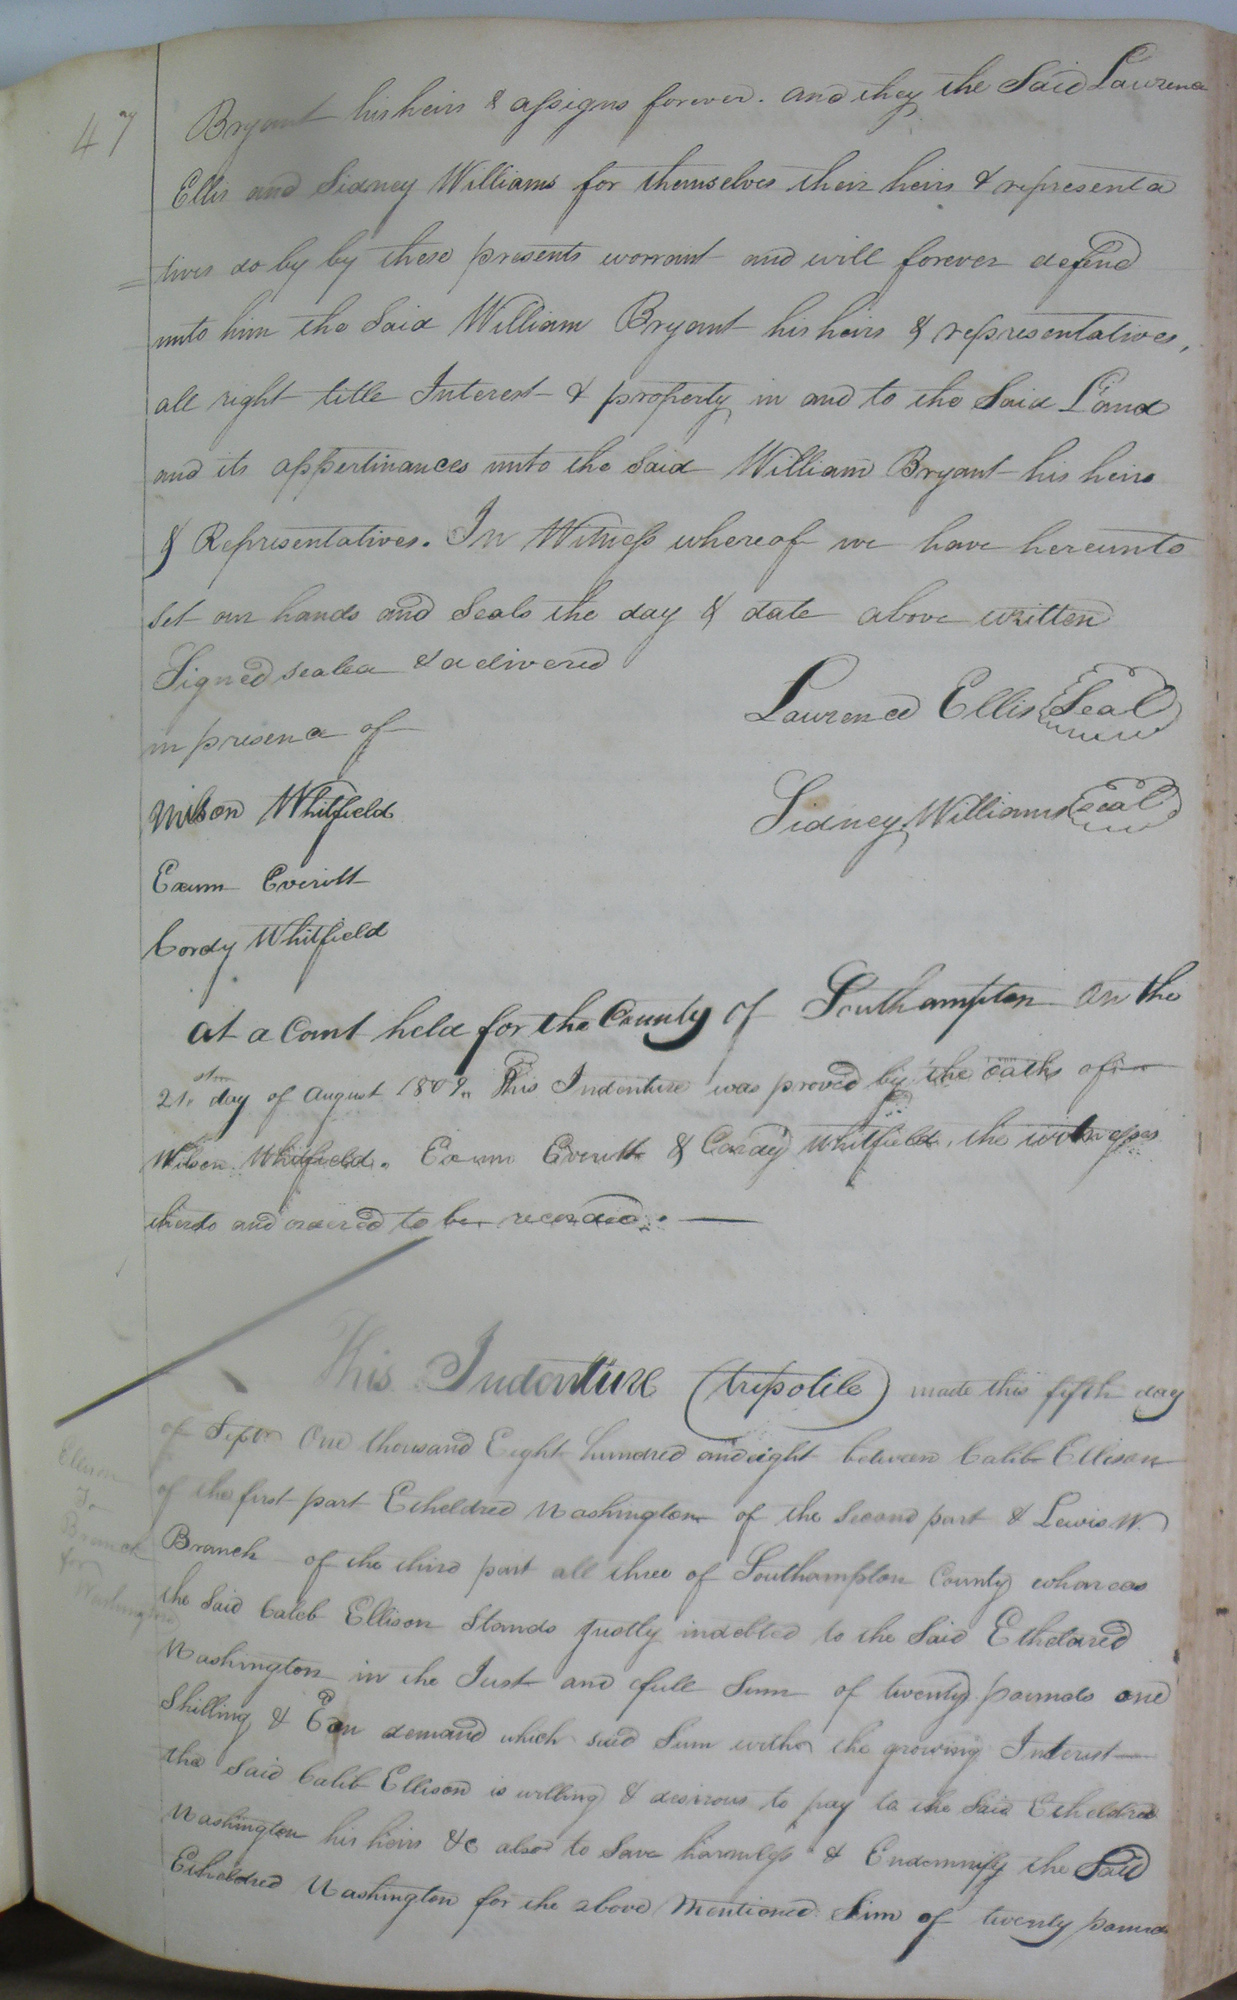 47
Bryant his heirs & assigns forever. and they the Said Lawrence
Ellis and Sidney Williams for themselves their heirs & representa
tives do by by these presents warrant and will forever defend
unto him the Said William Bryant his heirs & representatives,
all right title Interest & property in and to the Said Land
and its appertinances unto the Said William Bryant his heirs
& Representatives. In Witness whereof we have hereunto
set our hands and Seals the day & date above written
Signed sealed & delivered
in presence of
Lawrence Ellis Seal
Sidney Williams Seal
Wilson Whitfield
Exum Everitt
Cordy Whitfield
at a Court held for the County of Southampton on the
21st day of August 1809. This Indenture was proved by the oaths of
Wilson Whitfield. Exum Everitt & Cordy Whitfield, the witnesses
thereto and ordered to be recorded.
This Indenture (tripotile) made this fifth day
of Septr One thousand Eight hundred and eight between Caleb Ellison
of the first part Etheldred Washington of the Second part & Lewis W.
Branch of the third part all three of Southampton County whereas
the Said Caleb Ellison Stands justly indebted to the Said Etheldred
Washington in the Just and full Sum of twenty pounds one
Shilling & on demand which said Sum with the growing Interest
the Said Caleb Ellison is willing & desirous to pay to the Said Etheldred
Washington his heirs &c also to Save harmless & Endemnify the Said
Etheldred Washington for the above Mentioned Sum of twenty pounds
Ellison
To
Branch
for
Washington